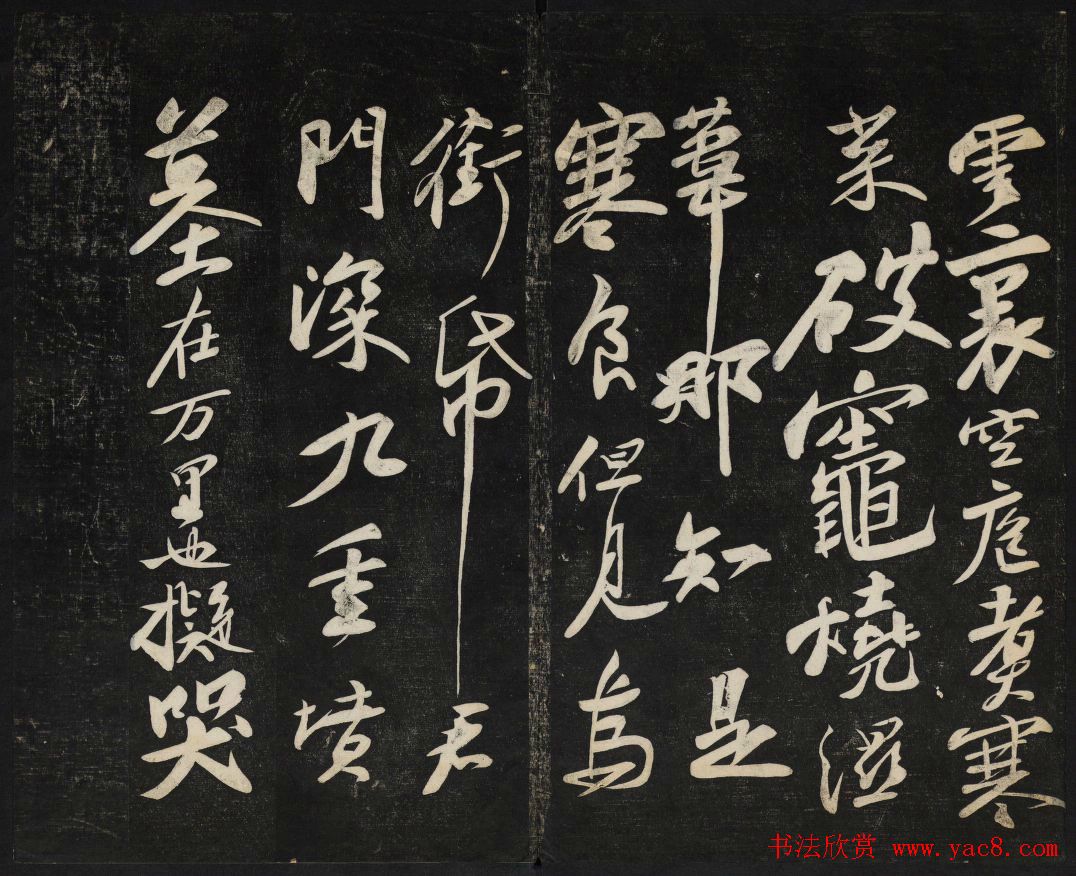 雲裏空庖煑寒
菜破竈燒濕
葦那知是
寒食但見烏
銜帋君
門深九重墳
墓在万里也擬哭
书法欣赏 www.yac8.com